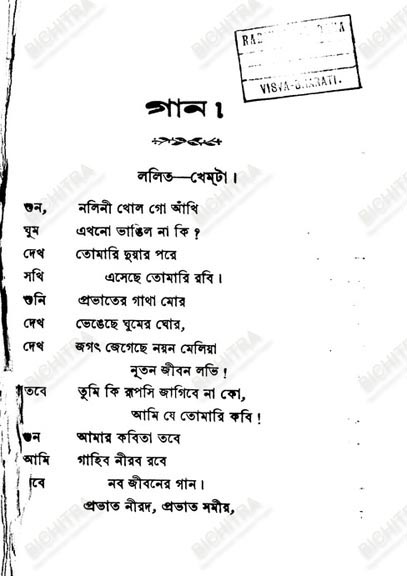 RAB
VISVA-BHARATI.
গান।
ললিত—খেম্‌টা।
শুন, নলিনী খোল গো আঁখি
ঘুম এখনো ভাঙিল না কি?
দেখ তোমারি দুয়ার পরে
সখি এসেছে তোমারি রবি।
শুনি প্রভাতের গাথা মোর
দেখ ভেঙেছে ঘুমের ঘোর,
দেখ জগৎ জেগেছে নয়ন মেলিয়া
নূতন জীবন লভি!
তবে তুমি কি রূপসি জাগিবে না কো,
আমি যে তোমারি কবি!
শুন আমার কবিতা তবে
আমি গাহিব নীরব রবে
বে নব জীবনের গান।
প্রভাত নীরদ, প্রভাত সমীর,
BICHITRA